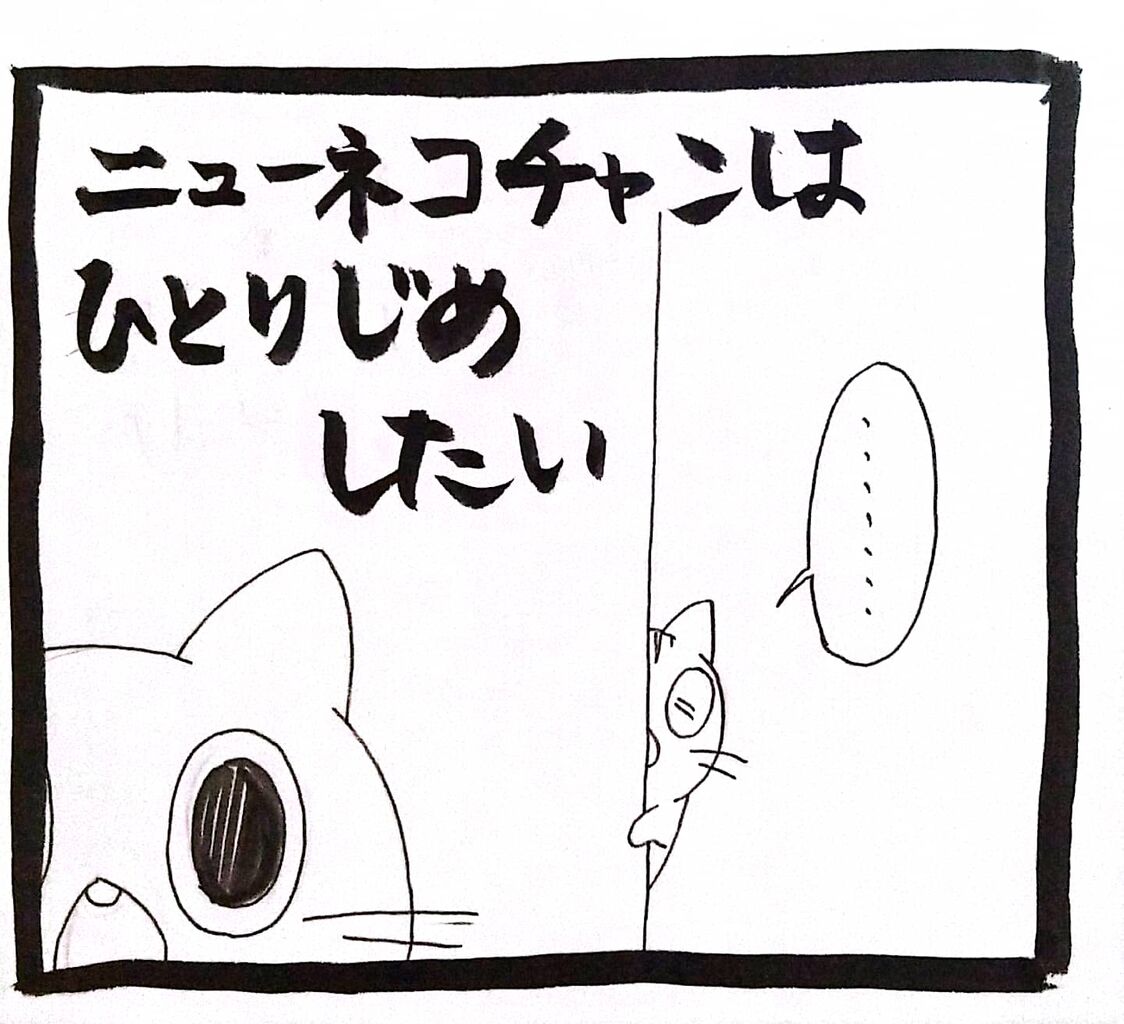 ニューネコチャンは
ひとりじめ
したい
・・・・・・・